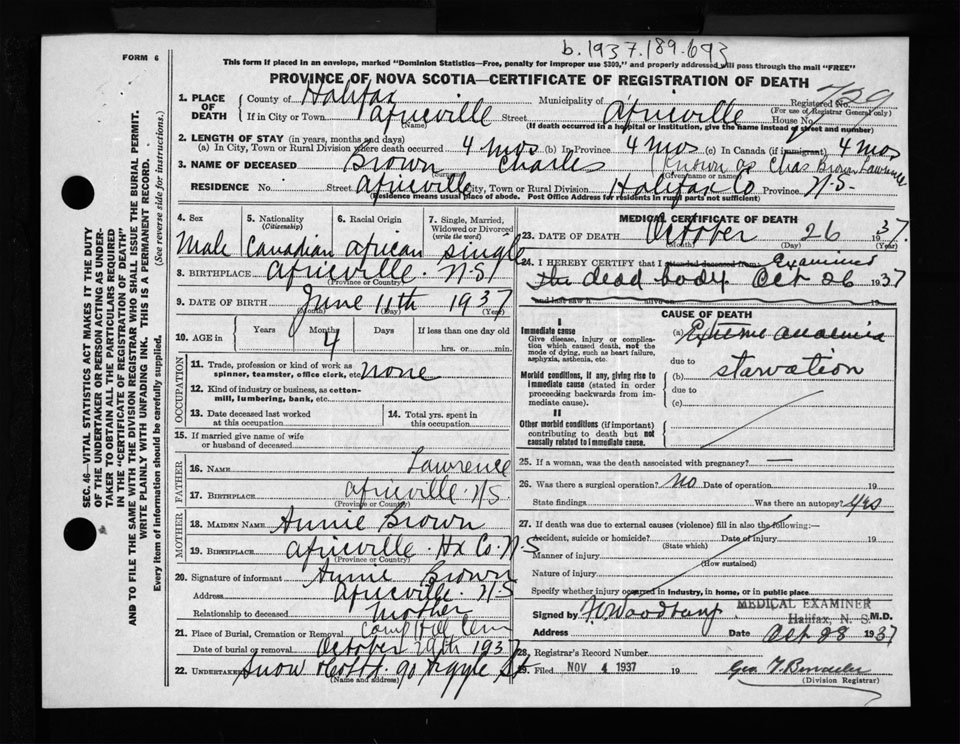 b.1937.189.693
FORM 6
This form if placed in an envelope, marked "Dominion Statistics—Free, penalty for improper use $300," and properly addressed will pass through the mail "FREE"
PROVINCE OF NOVA SCOTIA—CERTIFICATE OF REGISTRATION OF DEATH
SEC. 46—VITAL STATISTICS ACT MAKES IT THE DUTY OF THE UNDERTAKER OR PERSON ACTING AS UNDERTAKER TO OBTAIN ALL THE PARTICULARS REQUIRED IN THE "CERTIFICATE OF REGISTRATION OF DEATH"
AND TO FILE THE SAME WITH THE DIVISION REGISTRAR WHO SHALL ISSUE THE BURIAL PERMIT.
WRITE PLAINLY WITH UNFADING INK. THIS IS A PERMANENT RECORD.
Every item of information should be carefully supplied. (See reverse side for instructions.)
1. PLACE OF DEATH County of Halifax Municipality of Africville Registered No. 729
(For use of Registrar General only)
If in City or Town Africville Street House No.
(If death occurred in a hospital or institution, give the name instead of street and number)
2. LENGTH OF STAY (in years, months and days)
(a) In City, Town or Rural Division where death occurred 4 mos (b) In Province 4 mos (c) In Canada (if immigrant) 4 mos
3. NAME OF DECEASED Brown Charles (Known as Chas Brown Lawrence
(Given name or names)
RESIDENCE No. Street Africville City, Town or Rural Division Halifax Co Province N.S.
(Residence means usual place of abode. Post Office Address for residents in rural parts not sufficient)
4. Sex
Male
5. Nationality (Citizenship)
Canadian
6. Racial Origin
African
7. Single, Married, Widowed or Divorced (write the word)
Single
8. BIRTHPLACE Africville N.S.
(Province or Country)
9. DATE OF BIRTH June 11th 1937
(Month) (Day) (Year)
10. AGE in Years Months Days If less than one day old
4 hrs. or min.
OCCUPATION
11. Trade, profession or kind of work as spinner, teamster, office clerk, etc. none
12. Kind of industry or business, as cotton-mill, lumbering, bank, etc.
13. Date deceased last worked at this occupation
14. Total yrs. spent in this occupation
15. If married give name of wife or husband of deceased
FATHER
16. NAME Lawrence
17. BIRTHPLACE Africville N.S.
(Province or Country)
MOTHER
18. MAIDEN NAME Annie Brown
19. BIRTHPLACE Africville Hx Co. N.S
(Province or Country)
20. Signature of informant Annie Brown
Address Africville N.S
Relationship to deceased Mother
21. Place of Burial, Cremation or Removal Camp Hill Cem
Date of burial or removal October 29th 1937
22. UNDERTAKER Snow & Co Ltd. 90 Argyle St
(Name and address)
MEDICAL CERTIFICATE OF DEATH
23. DATE OF DEATH October 26 1937
(Month) (Day) (Year)
24. I HEREBY CERTIFY that I attended deceased from Examined
the dead body Oct 26 1937
and last saw h alive on 19
CAUSE OF DEATH
I
Immediate cause
Give disease, injury or complication which caused death, not the mode of dying, such as heart failure, asphyxia, asthenia, etc.
(a) Extreme anaemia
due to
Morbid conditions, if any, giving rise to immediate cause (stated in order proceeding backwards from immediate cause).
(b) starvation
due to
(c)
II
Other morbid conditions (if important) contributing to death but not causally related to immediate cause.
25. If a woman, was the death associated with pregnancy? —
26. Was there a surgical operation? No Date of operation 19
State findings Was there an autopsy? Yes
27. If death was due to external causes (violence) fill in also the following:—
Accident, suicide or homicide? Date of injury 19
(State which)
Manner of injury
(How sustained)
Nature of injury
Specify whether injury occurred in industry, in home, or in public place
Signed by MEDICAL EXAMINER M.D.
Halifax, N. S.
Address Date Oct 28 1937
28. Registrar's Record Number
29. Filed NOV 4 1937 19
(Division Registrar)